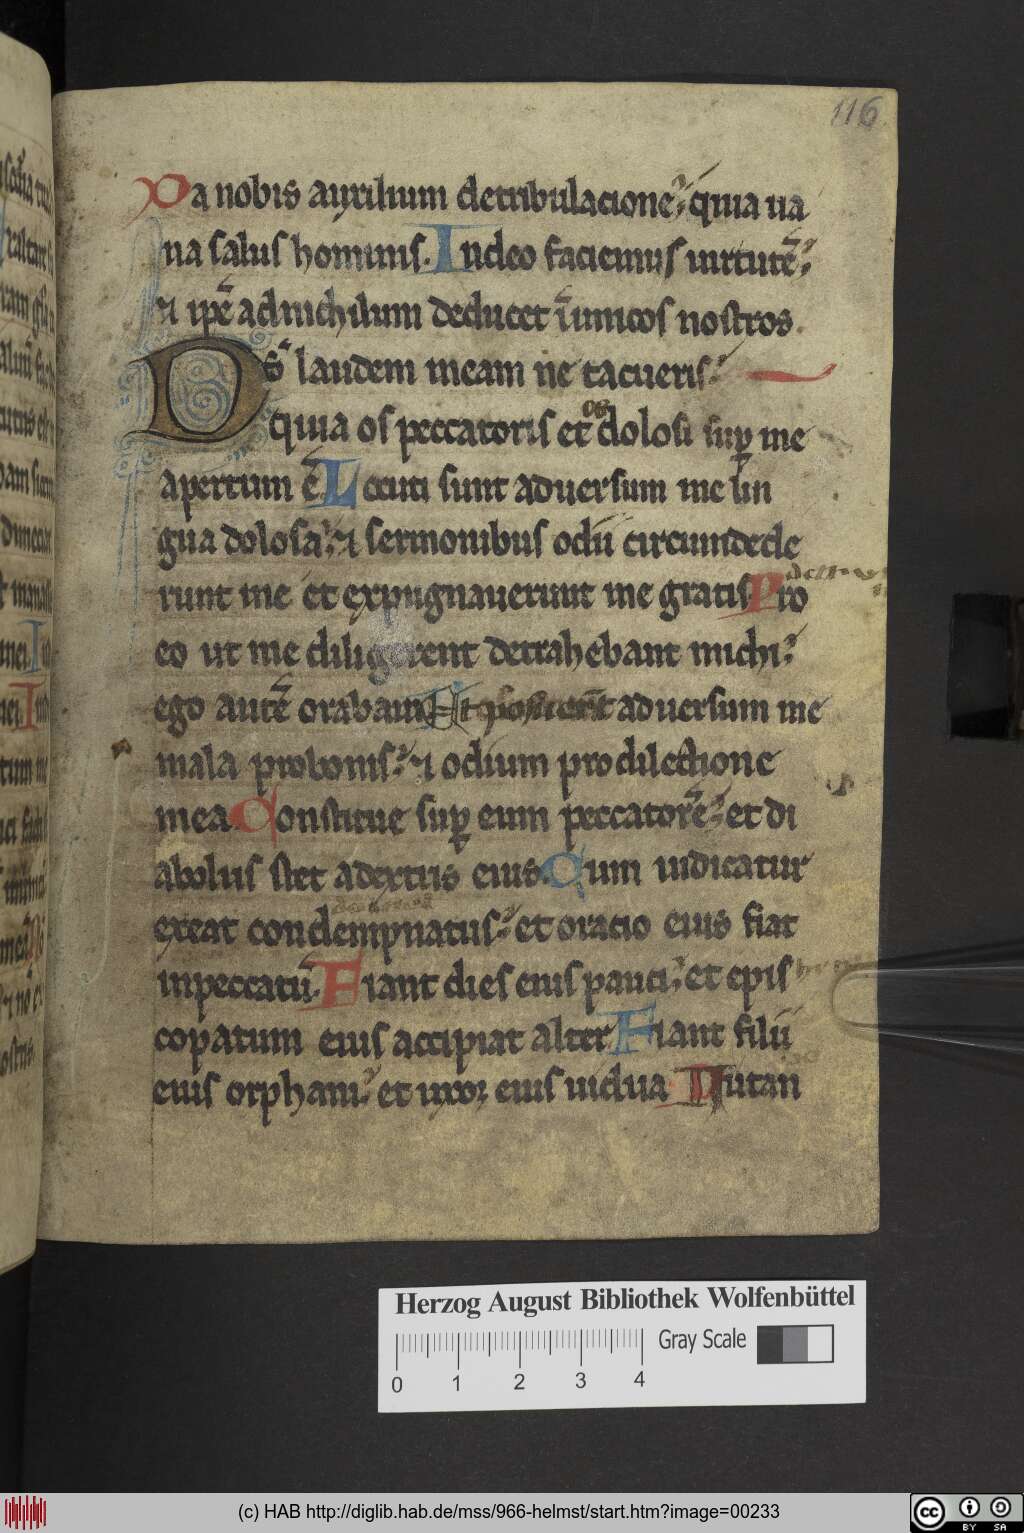 116
Da nobis auxilium detribulacione quia ua
na salus hominis. Indeo faciemus uirtutē
⁊ ipē adnichilum deducet īimicos nostros.
Ds laudem meam ne tacueris
os
quia os peccatoris et dolosi suꝑ me
apertum ē Locuti sunt aduersum me lin
gua dolosa ⁊ sermonibus odii circumdede
runt me et expugnauerunt me gratis Pro
eo ut me diligerent detrahebant michi
ego autē orabam Et posuerūt aduersum me
mala probonis ⁊ odium prodilectione
mea Constitue suꝑ eum peccatorē et di
abolus stet adextris eius. Cum iudicatur
exeat condempnatus et oratio eius fiat
inpeccatū. Fiant dies eius pauci et epis
copatum eius accipiat alter Fiant filii
eius orphani et uxoꝛ eius uidua Nutan
Herzog August Bibliothek Wolfenbüttel
Gray Scale
0 1 2 3 4
(c) HAB http://diglib.hab.de/mss/966-helmst/start.htm?image=00233
cc BY SA